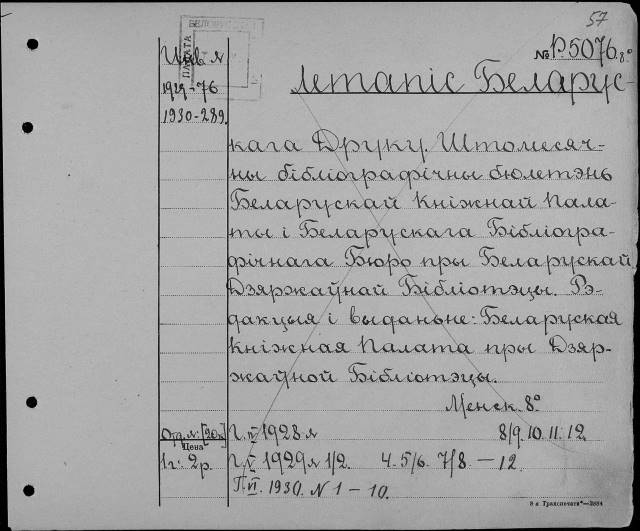 57
БЕЛОРУС
ПАЛАТА
№ Р.5076.8°
Инв №
1929-76
1930-289.
Летапіс Беларус-
кага Друку. Штомесяч-
ны бібліографічны бюлетэнь
Беларускай Кніжнай Пала-
ты і Беларускага Бібліогра-
фічнага Бюро пры Беларускай
Дзяржаўнай Бібліотэцы. Рэ-
дакцыя і выданьне: Беларуская
Кніжная Палата пры Дзяр-
жаўной Бібліотэцы.
Менск. 8°
Отд. №: [20к]
Цена
1 г: 2 р.
Г. IV 1928 №
8/9. 10. 11. 12.
Г. V 1929 № 1/2. 4. 5/6. 7/8. — 12.
Г. VI. 1930. N 1 — 10.